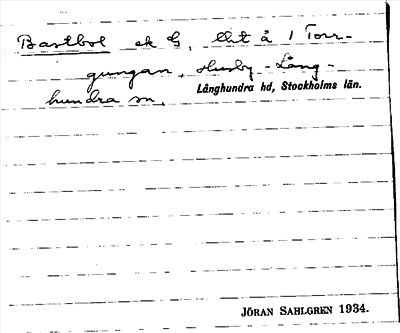 Bastbol ek G, tht å 1 Torr-
gungan, Husby-Lång-
hundra sn,
Långhundra hd, Stockholms län.
JÖRAN SAHLGREN 1934.